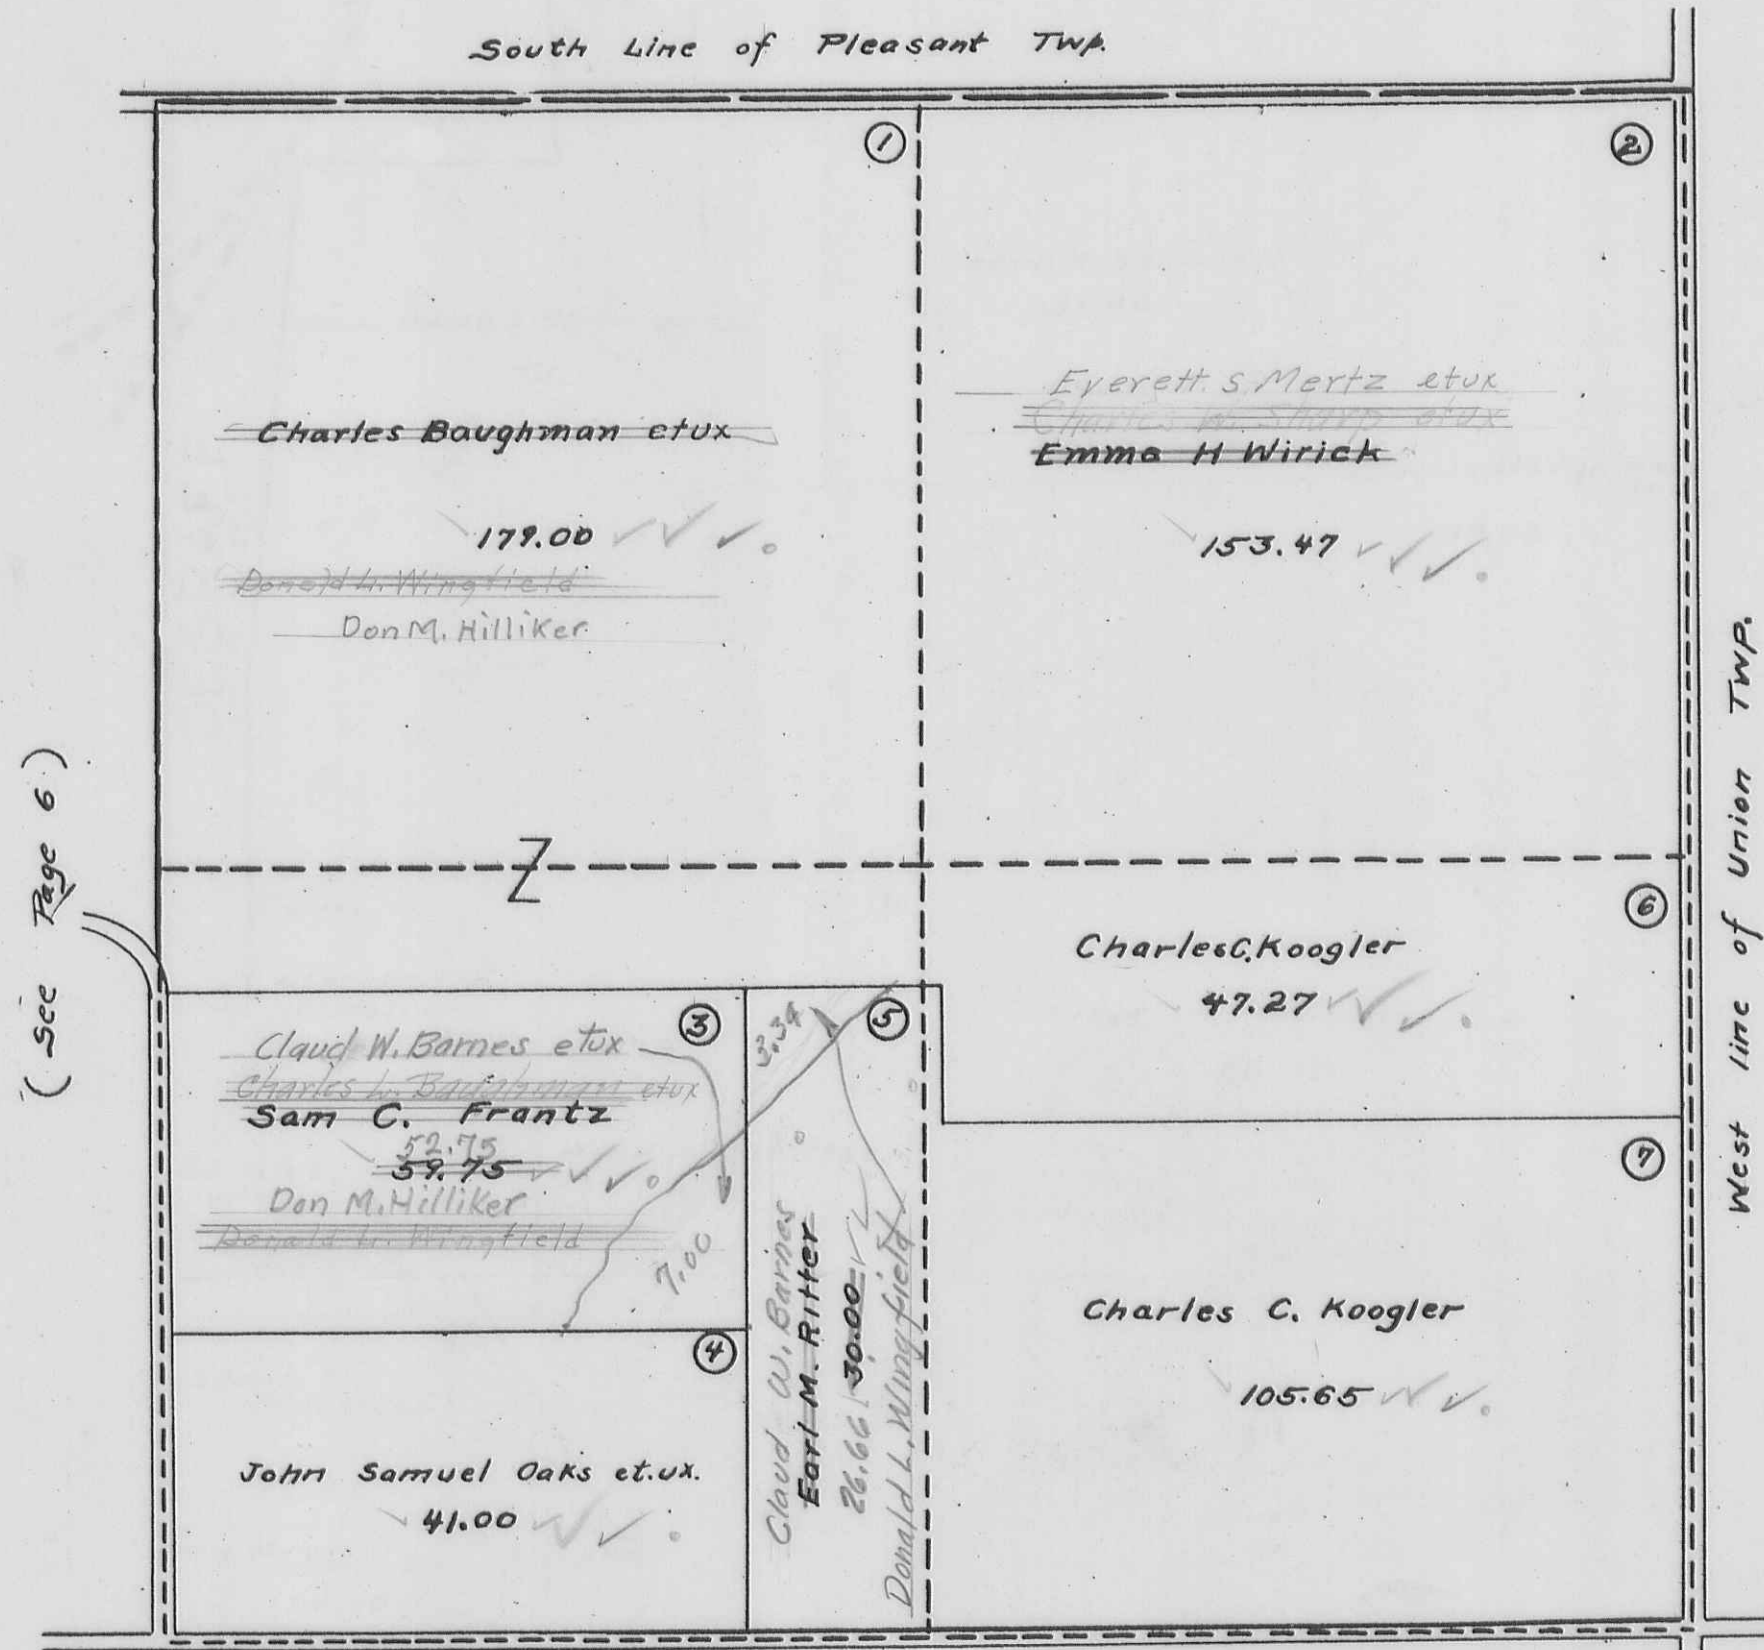 South Line of Pleasant Twp.
1
2
Charles Baughman etux
179.00
Donald L. Wingfield
Don M. Hilliker
Everett S. Mertz etux
Charles W. Sharp etux
Emma H Wirick
153.47
West line of Union TWP.
( See Page 6 )
Z
6
Charles C. Koogler
47.27
3
Claud W. Barnes etux
Charles L. Baughman etux
Sam C. Frantz
52.75
59.75
Don M. Hilliker
Donald L. Wingfield
7.00
5
3.34
Claud W. Barnes
Earl M. Ritter
26.66 30.00
Donald L. Wingfield
7
Charles C. Koogler
105.65
4
John Samuel Oaks et.ux.
41.00